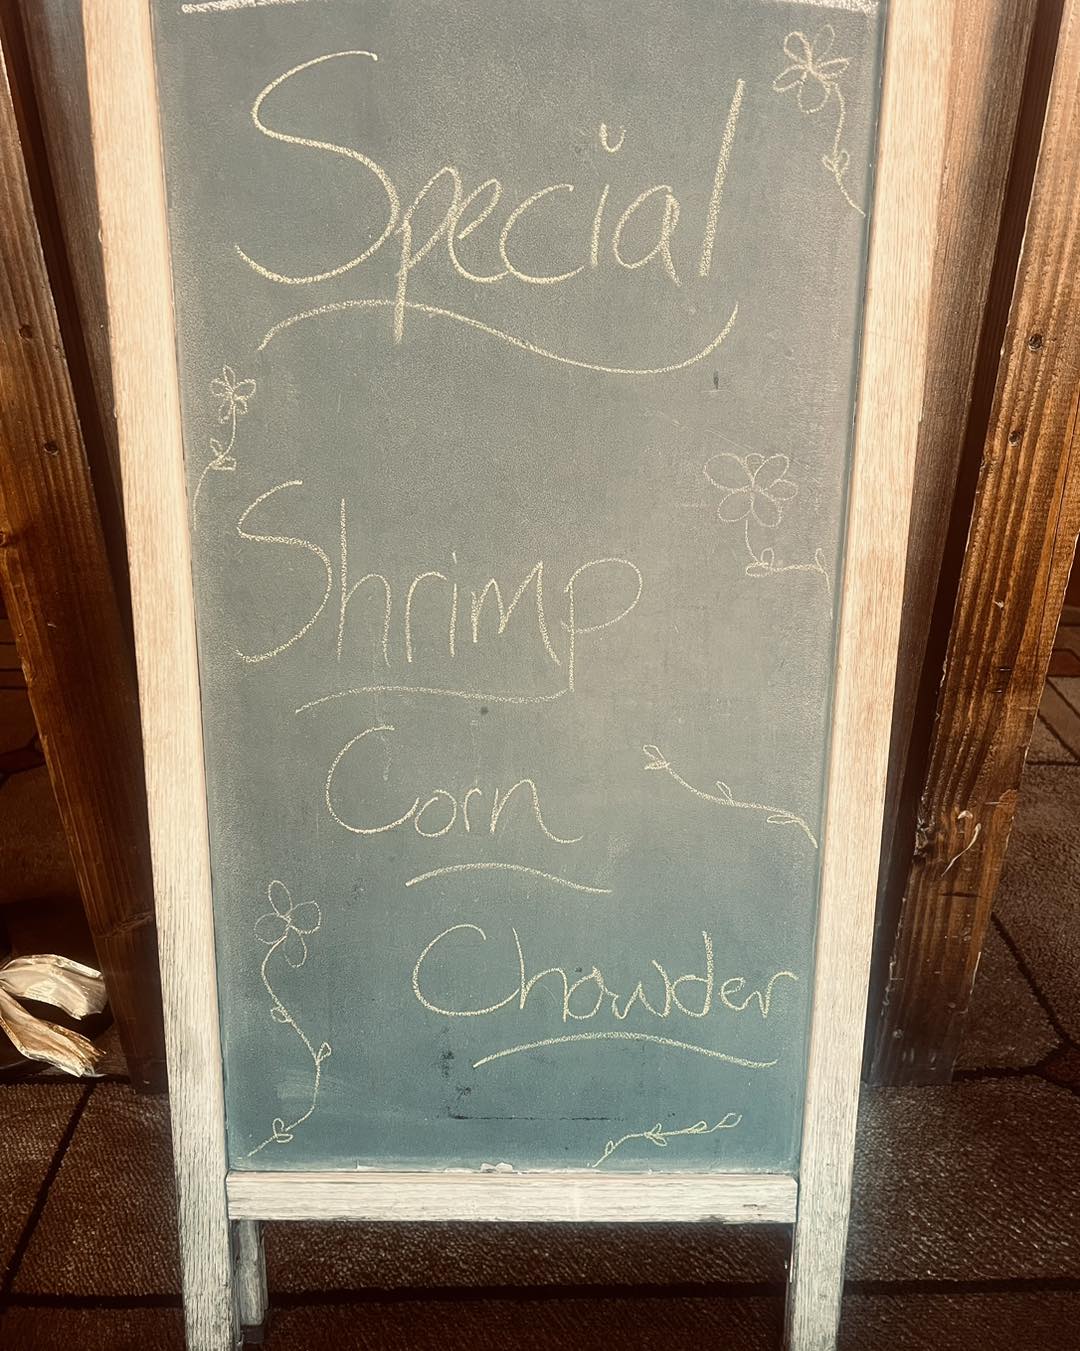 Special
Shrimp
Corn
Chowder